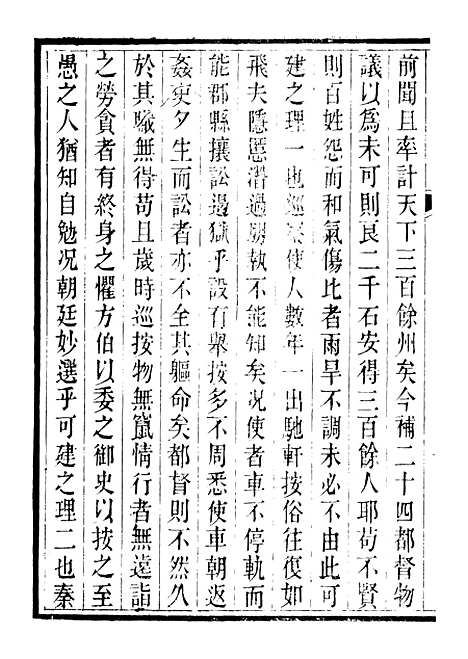 前聞且率計天下三百餘州矣今補二十四都督物
議以爲未可則良二千石安得三百餘人耶茍不賢
則百姓怨而和氣傷比者雨旱不調未必不由此可
建之理一也巡察使人數年一出馳軒按俗往復如
飛夫隱慝潛過勢執不能知矣况使者車不停軌而
能郡縣攘訟邊獄乎設有舉按多不周悉使車朝返
姦吏夕生而訟者亦不全其軀命矣都督則不然久
於其職無得茍且歲時巡按物無竄情行者無遠詣
之勞貪者有終身之懼方伯以委之御史以按之至
愚之人猶知自勉况朝廷妙選乎可建之理二也秦